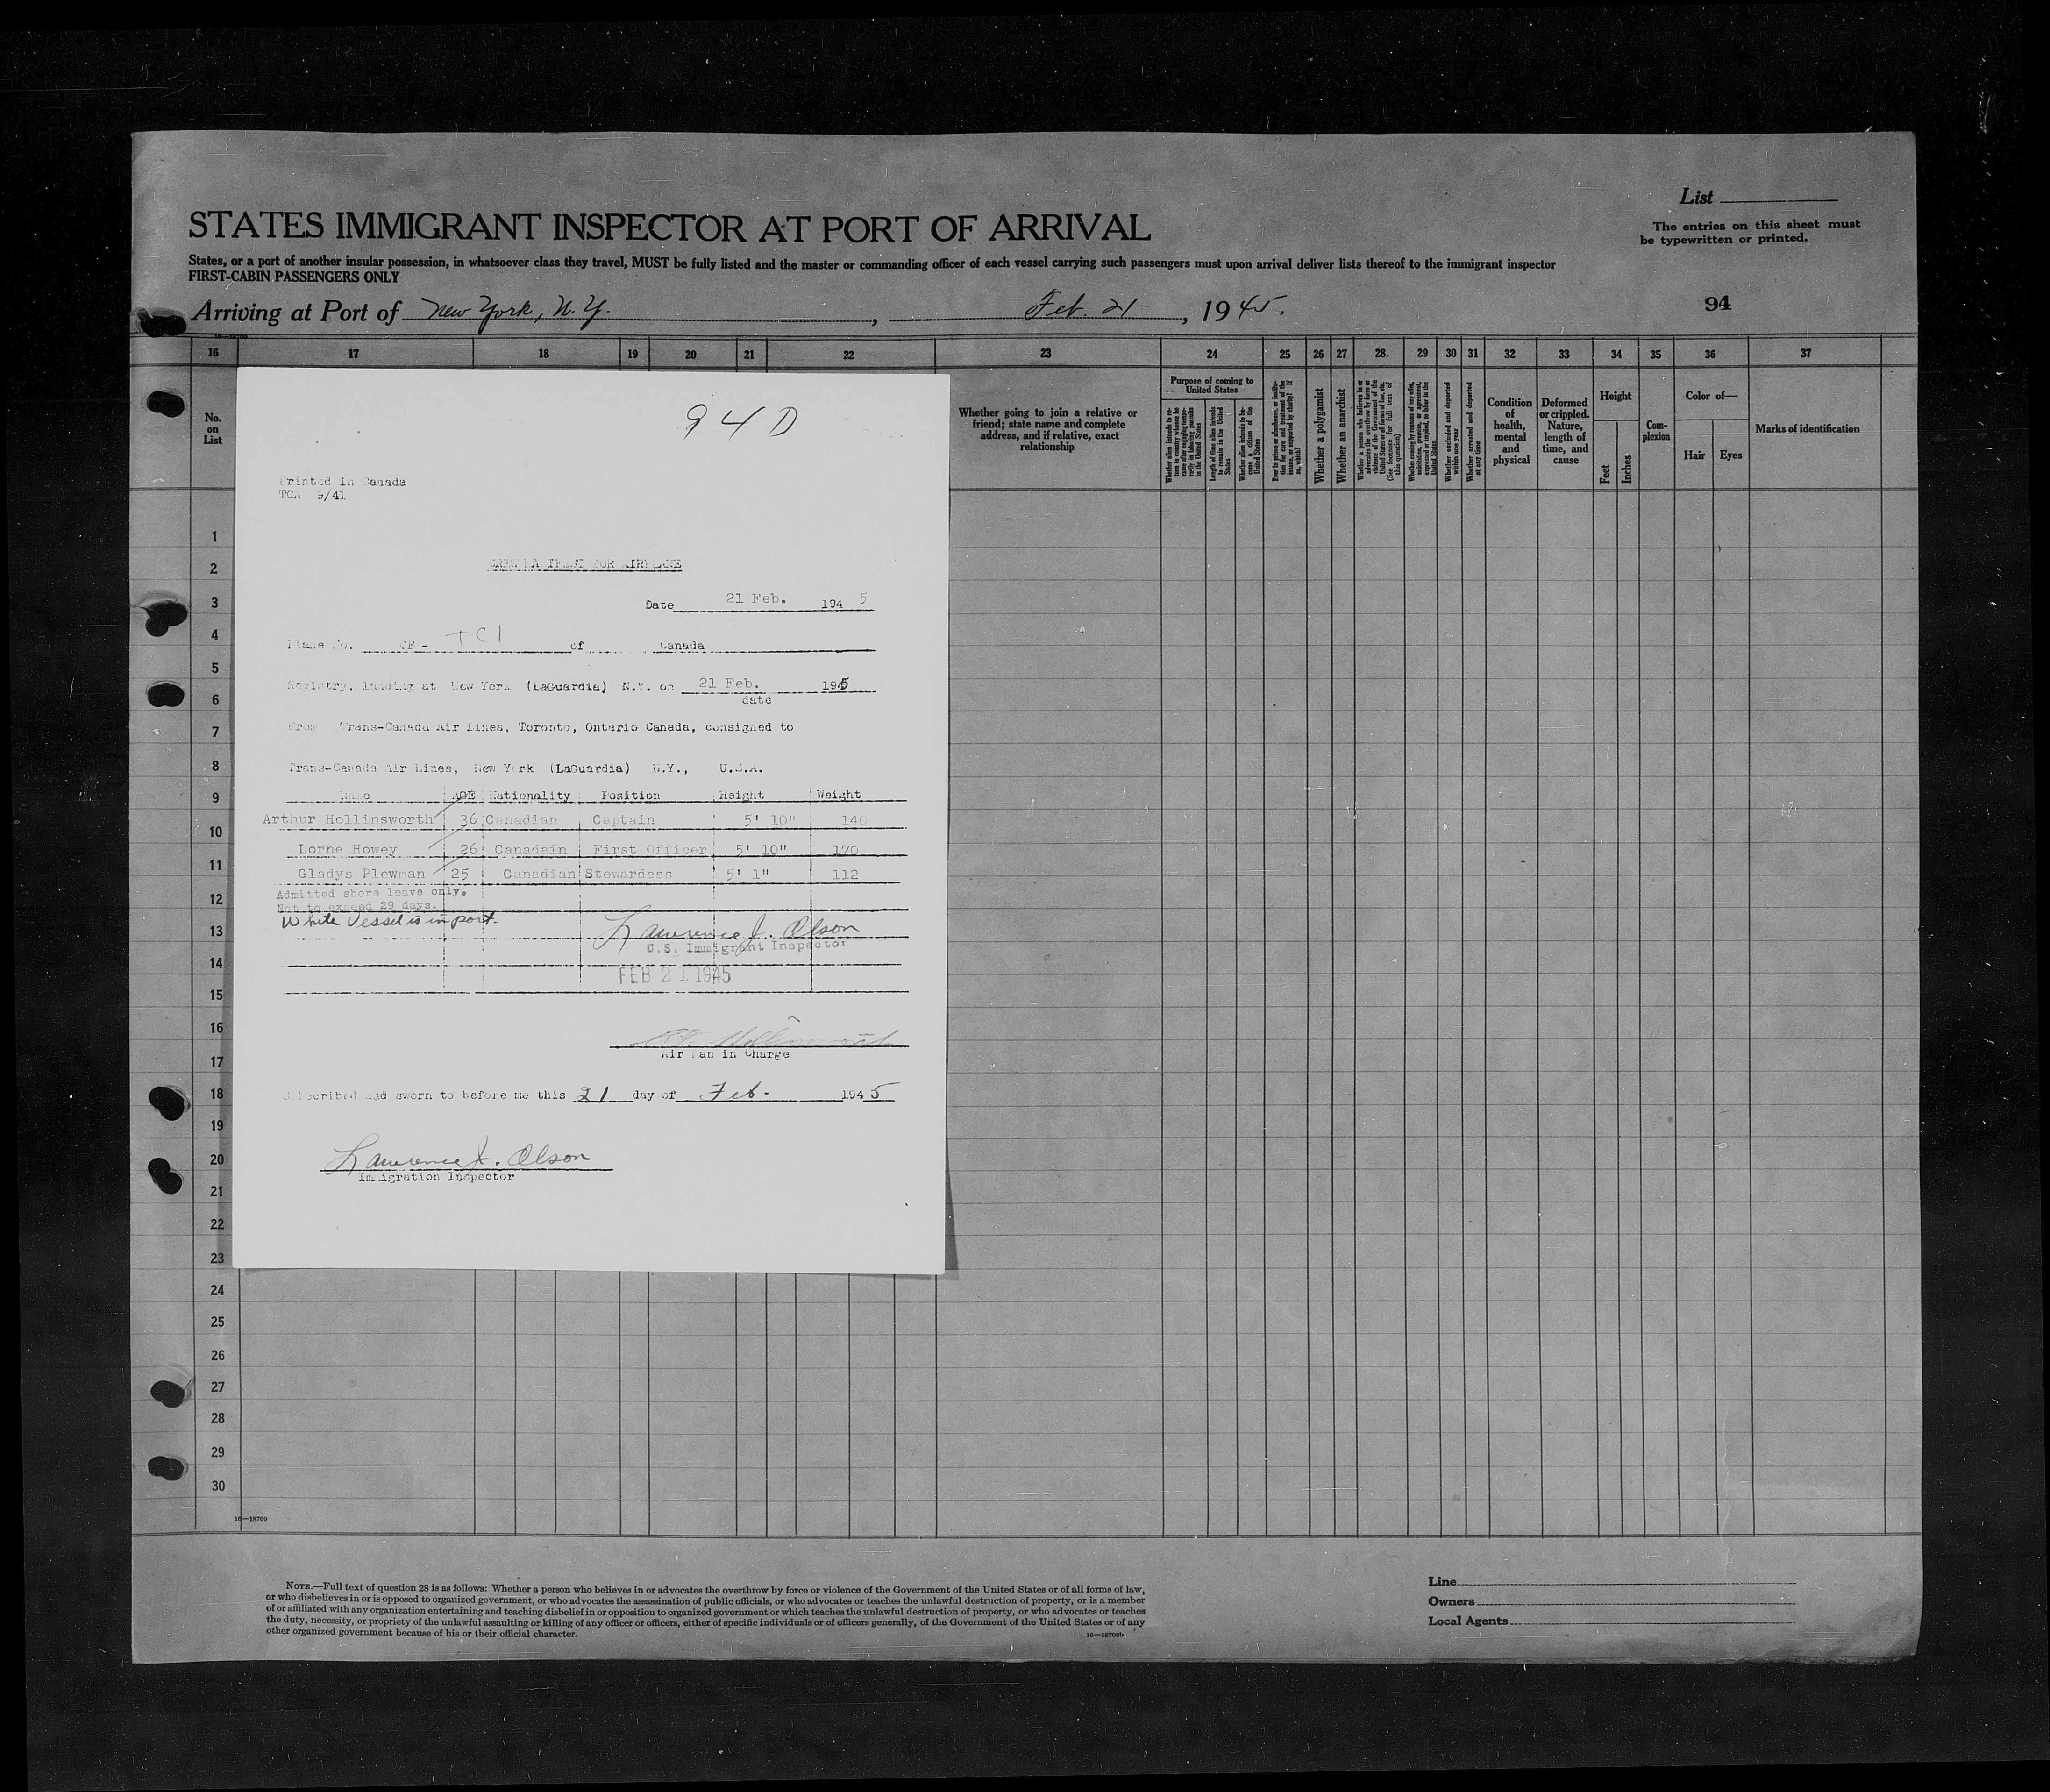 List
STATES IMMIGRANT INSPECTOR AT PORT OF ARRIVAL
The entries on this sheet must
be typewritten or printed.
States, or a port of another insular possession, in whatsoever class they travel, MUST be fully listed and the master or commanding officer of each vessel carrying such passengers must upon arrival deliver lists thereof to the immigrant inspector
FIRST-CABIN PASSENGERS ONLY
Arriving at Port of New York, N.Y., Feb. 21, 1945.
94
16 17 18 19 20 21 22 23 24 25 26 27 28. 29 30 31 32 33 34 35 36 37
No.
on
List
Whether going to join a relative or
friend; state name and complete
address, and if relative, exact
relationship
Purpose of coming to
United States
Whether a polygamist
Whether an anarchist
Condition
of
health,
mental
and
physical
Deformed
or crippled.
Nature,
length of
time, and
cause
Height
Feet
Inches
Com-
plexion
Color of—
Hair
Eyes
Marks of identification
94 D
Printed in Canada
TCA 9/41
CREW MANIFEST FOR AIRPLANE
Date 21 Feb. 194 5
Plane No. CF - TCI of Canada
Registry, landing at New York (LaGuardia) N.Y. on 21 Feb. 1945
date
From Trans-Canada Air Lines, Toronto, Ontario Canada, consigned to
Trans-Canada Air Lines, New York (LaGuardia) N.Y., U.S.A.
Name AGE Nationality Position Height Weight
Arthur Hollinsworth 36 Canadian Captain 5' 10" 140
Lorne Howey 26 Canadain First Officer 5' 10" 170
Gladys Plewman 25 Canadian Stewardess 5' 1" 112
Admitted shore leave only.
Not to exceed 29 days.
While Vessel is in port.
Lawrence J. Olson
U.S. Immigrant Inspector
FEB 21 1945
Hollinsworth
Air Man in Charge
Subscribed and sworn to before me this 21 day of Feb. 194 5
Lawrence J. Olson
Immigration Inspector
1
2
3
4
5
6
7
8
9
10
11
12
13
14
15
16
17
18
19
20
21
22
23
24
25
26
27
28
29
30
16—18709
NOTE.—Full text of question 28 is as follows: Whether a person who believes in or advocates the overthrow by force or violence of the Government of the United States or of all forms of law,
or who disbelieves in or is opposed to organized government, or who advocates the assassination of public officials, or who advocates or teaches the unlawful destruction of property, or is a member
of or affiliated with any organization entertaining and teaching disbelief in or opposition to organized government or which teaches the unlawful destruction of property, or who advocates or teaches
the duty, necessity, or propriety of the unlawful assaulting or killing of any officer or officers, either of specific individuals or of officers generally, of the Government of the United States or of any
other organized government because of his or their official character.
16—18709b
Line
Owners
Local Agents